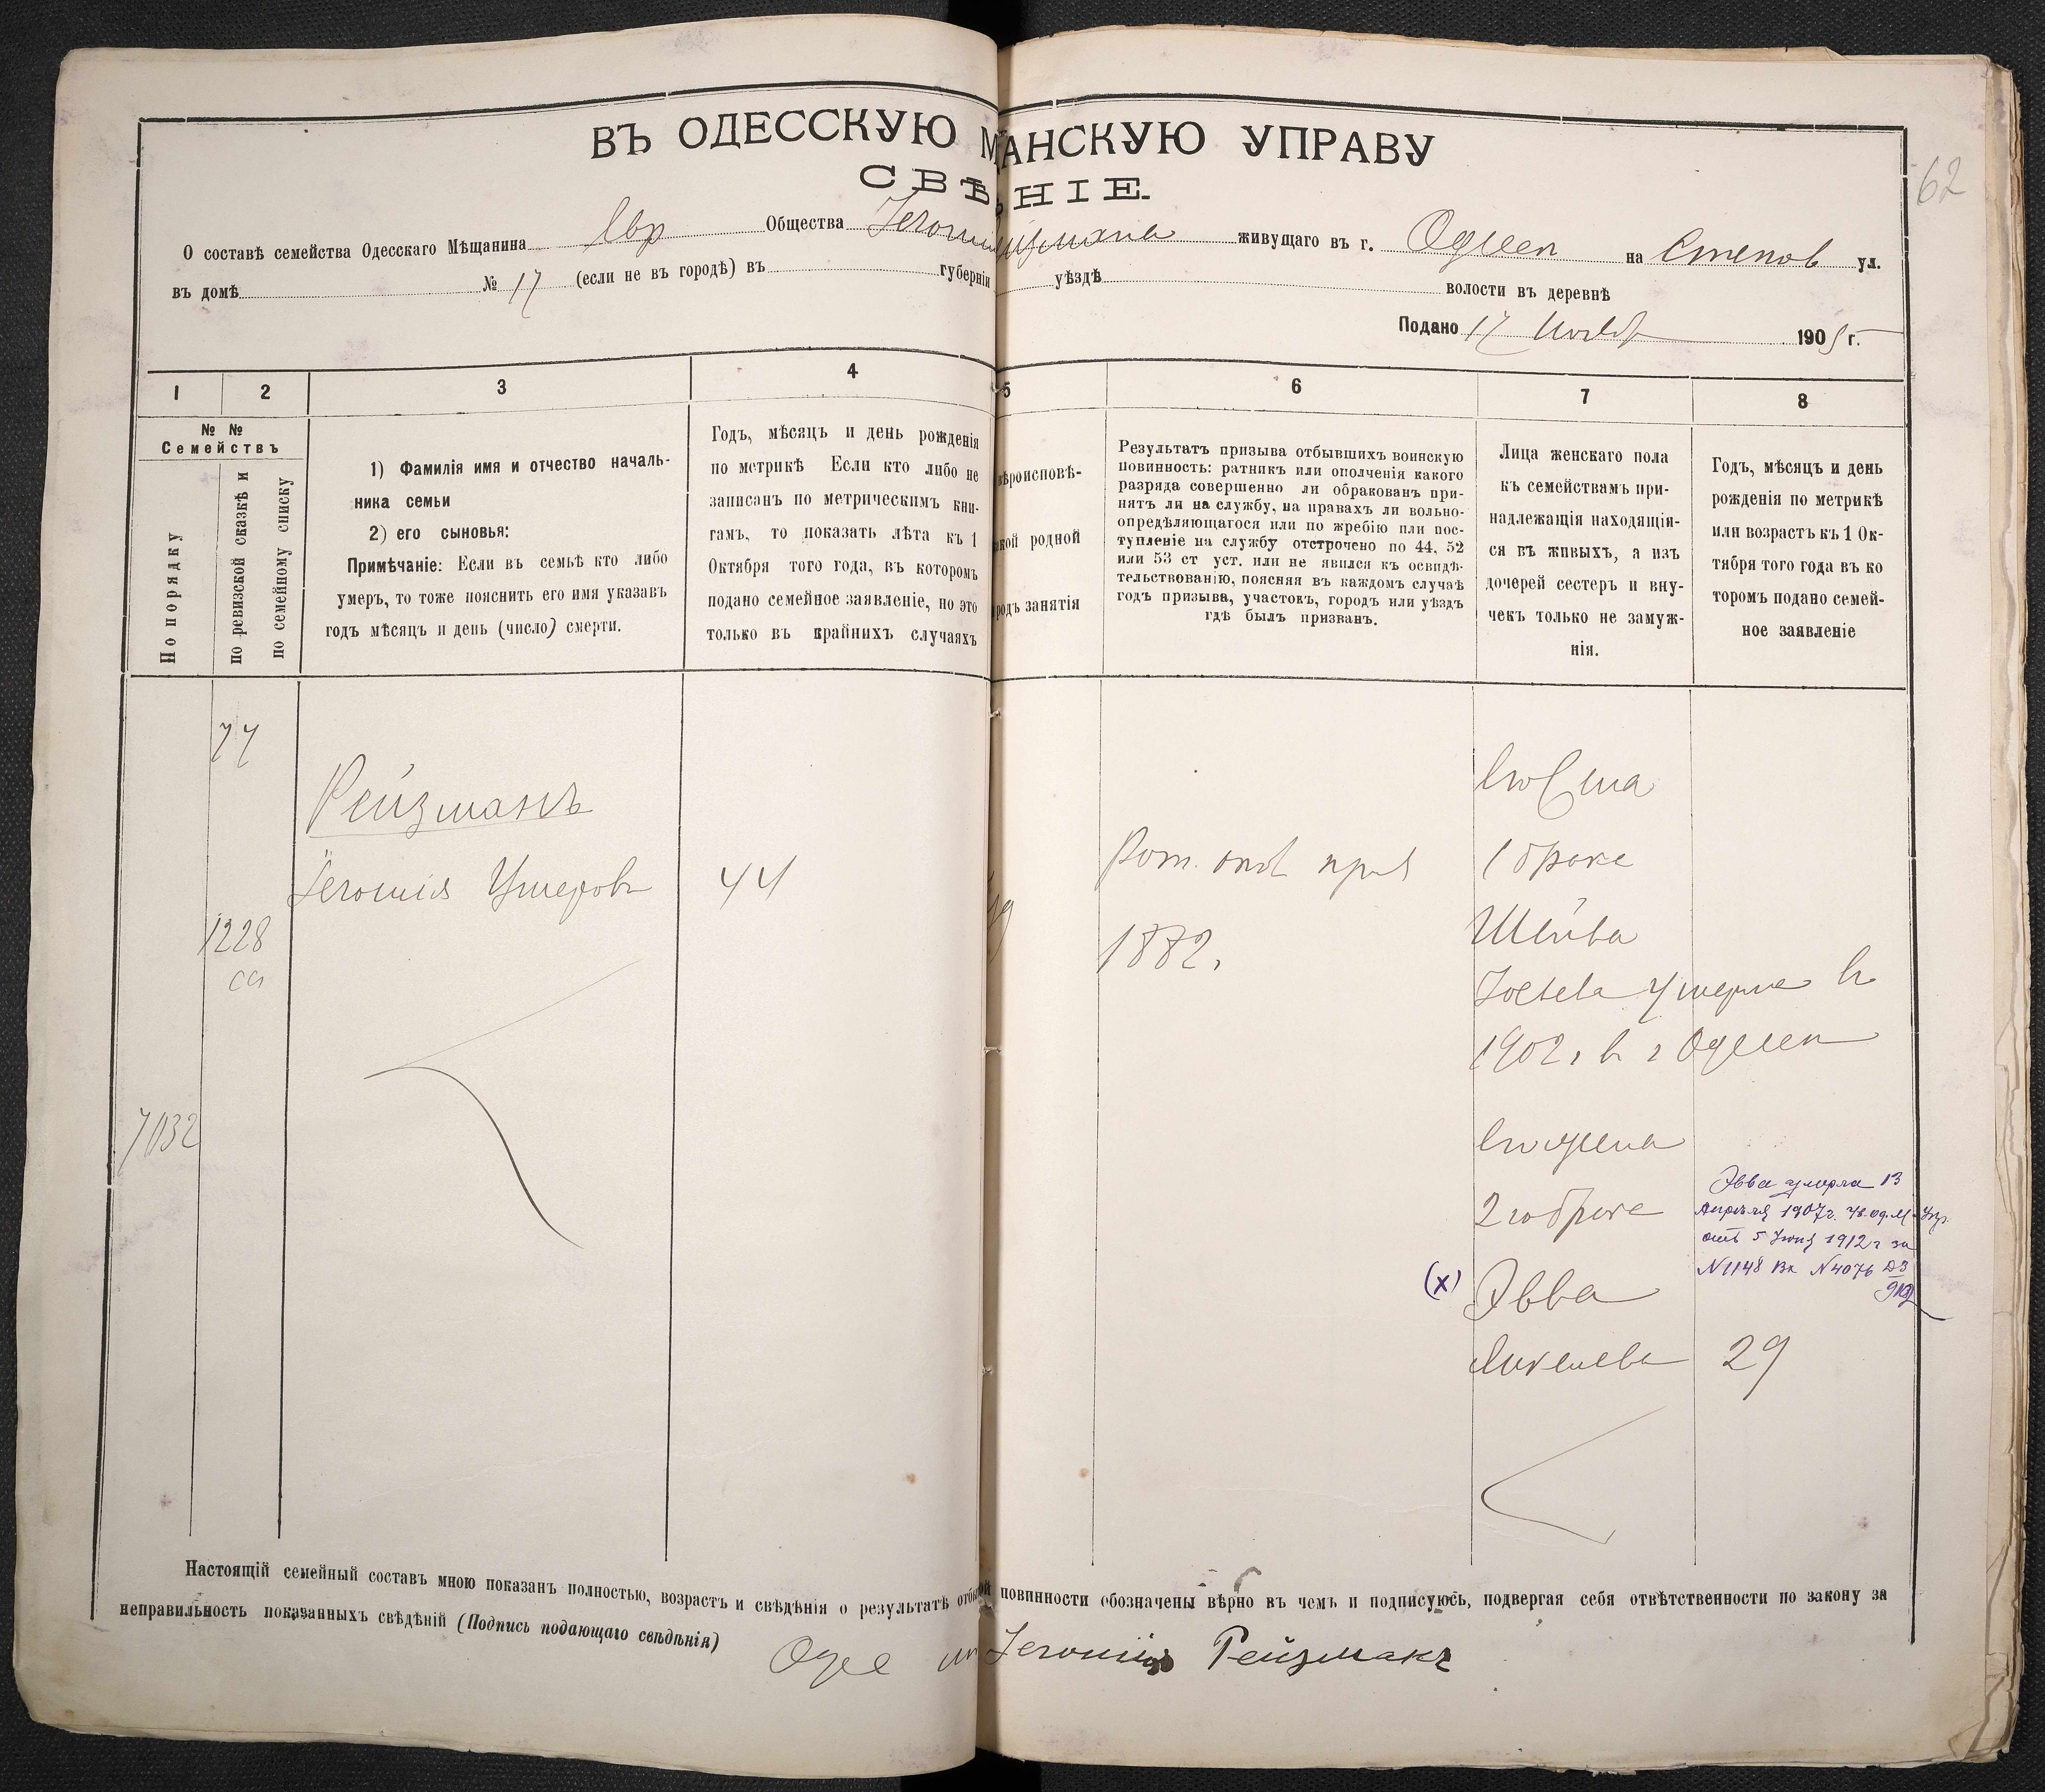 ВЪ ОДЕССКУЮ М АНСКУЮ УПРАВУ
СВѢ НІЕ.
62
О составѣ семейства Одесскаго Мѣщанина Евр Общества живущаго въ г. Одессѣ на Степов ул.
въ домѣ № 17 (если не въ городѣ) въ губерніи уѣздѣ волости въ деревнѣ
Подано 17 1905 г.
1 2 3 4 5 6 7 8
№ №
Семействъ
По порядку
по ревизской сказкѣ и
по семейному списку
1) Фамилія имя и отчество началь-
ника семьи
2) его сыновья:
Примѣчаніе: Если въ семьѣ кто либо
умеръ, то тоже пояснить его имя указавъ
годъ мѣсяцъ и день (число) смерти.
Годъ, мѣсяцъ и день рожденія
по метрикѣ Если кто либо не
записанъ по метрическимъ кни-
гамъ, то показать лѣта къ 1
Октября того года, въ которомъ
подано семейное заявленіе, но это
только въ крайнихъ случаяхъ
вѣроисповѣ-
акой родной
родъ занятія
Результатъ призыва отбывшихъ воинскую
повинность: ратникъ или ополченія какого
разряда совершенно ли обракованъ при-
нятъ ли на службу, на правахъ ли вольно-
опредѣляющагося или по жребію или пос-
тупленіе на службу отстрочено по 44, 52
или 53 ст уст. или не явился къ освидѣ-
тельствованію, поясняя въ каждомъ случаѣ
годъ призыва, участокъ, городъ или уѣздъ
гдѣ былъ призванъ.
Лица женскаго пола
къ семействамъ при-
надлежащія находящія-
ся въ живыхъ, а изъ
дочерей сестеръ и вну-
чекъ только не замуж-
нія.
Годъ, мѣсяцъ и день
рожденія по метрикѣ
или возрастъ къ 1 Ок-
тября того года въ ко
торомъ подано семей-
ное заявленіе
77
Рейзманъ
Іегошія Ушеровъ 44
1228
са
7032
Рат. опол приз
1882.
его жена
1 брака
Шейва
Іосева умерла въ
1902 г в г Одессѣ
его жена
2го брака
(х) Эвва
Янкелева 29
Эвва умерла 13
Апрѣля 1907г. Ув. Од. М. Упр.
отъ 5 Іюня 1912 г за
N 1148 Вх N 4076 
Настоящій семейный составъ мною показанъ полностью, возрастъ и свѣдѣнія о результатѣ отбы ой повинности обозначены вѣрно въ чемъ и подписуюсь, подвергая себя отвѣтственности по закону за
неправильность показанныхъ свѣдѣній (Подпись подающаго свѣдѣнія)
Одес Іегошія Рейзманъ